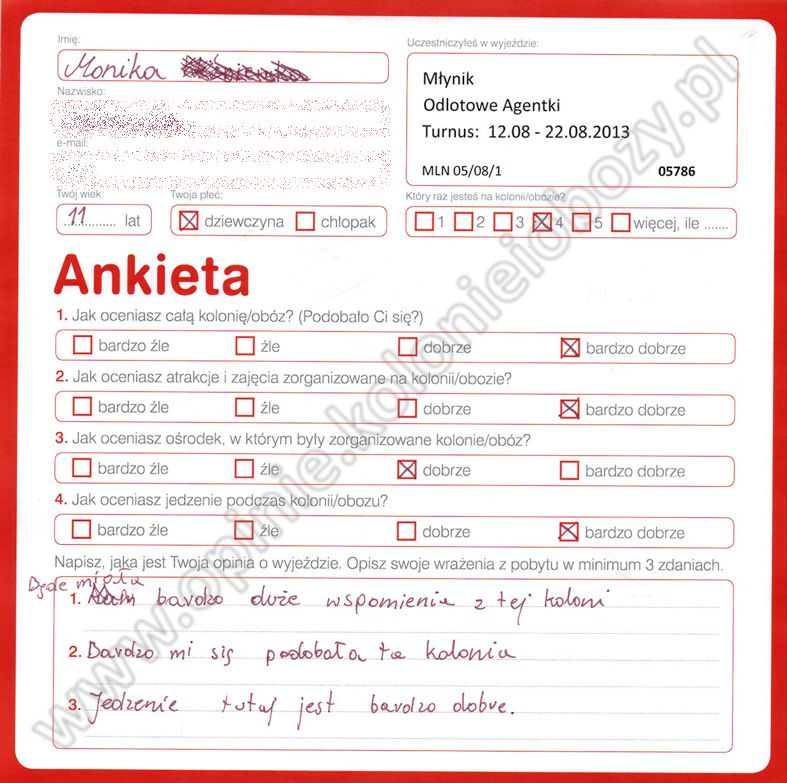 Imię:
Uczestniczyłeś w wyjeździe:
Monika
Młynik
Odlotowe Agentki
Turnus: 12.08 - 22.08.2013
MLN 05/08/1 05786
Nazwisko:
e-mail:
Twój wiek: Twoja płeć: Który raz jesteś na kolonii/obozie?
11 lat dziewczyna chłopak 1 2 3 4 5 więcej, ile .......
Ankieta
1. Jak oceniasz całą kolonię/obóz? (Podobało Ci się?)
bardzo źle źle dobrze bardzo dobrze
2. Jak oceniasz atrakcje i zajęcia zorganizowane na kolonii/obozie?
bardzo źle źle dobrze bardzo dobrze
3. Jak oceniasz ośrodek, w którym były zorganizowane kolonie/obóz?
bardzo źle źle dobrze bardzo dobrze
4. Jak oceniasz jedzenie podczas kolonii/obozu?
bardzo źle źle dobrze bardzo dobrze
Napisz, jaka jest Twoja opinia o wyjeździe. Opisz swoje wrażenia z pobytu w minimum 3 zdaniach.
Będe miała
1. bardzo duże wspomienia z tej koloni
2. Bardzo mi się podobała ta kolonia
3. Jedzenie tutaj jest bardzo dobre.
www.opinie.kolonieiobozy.pl